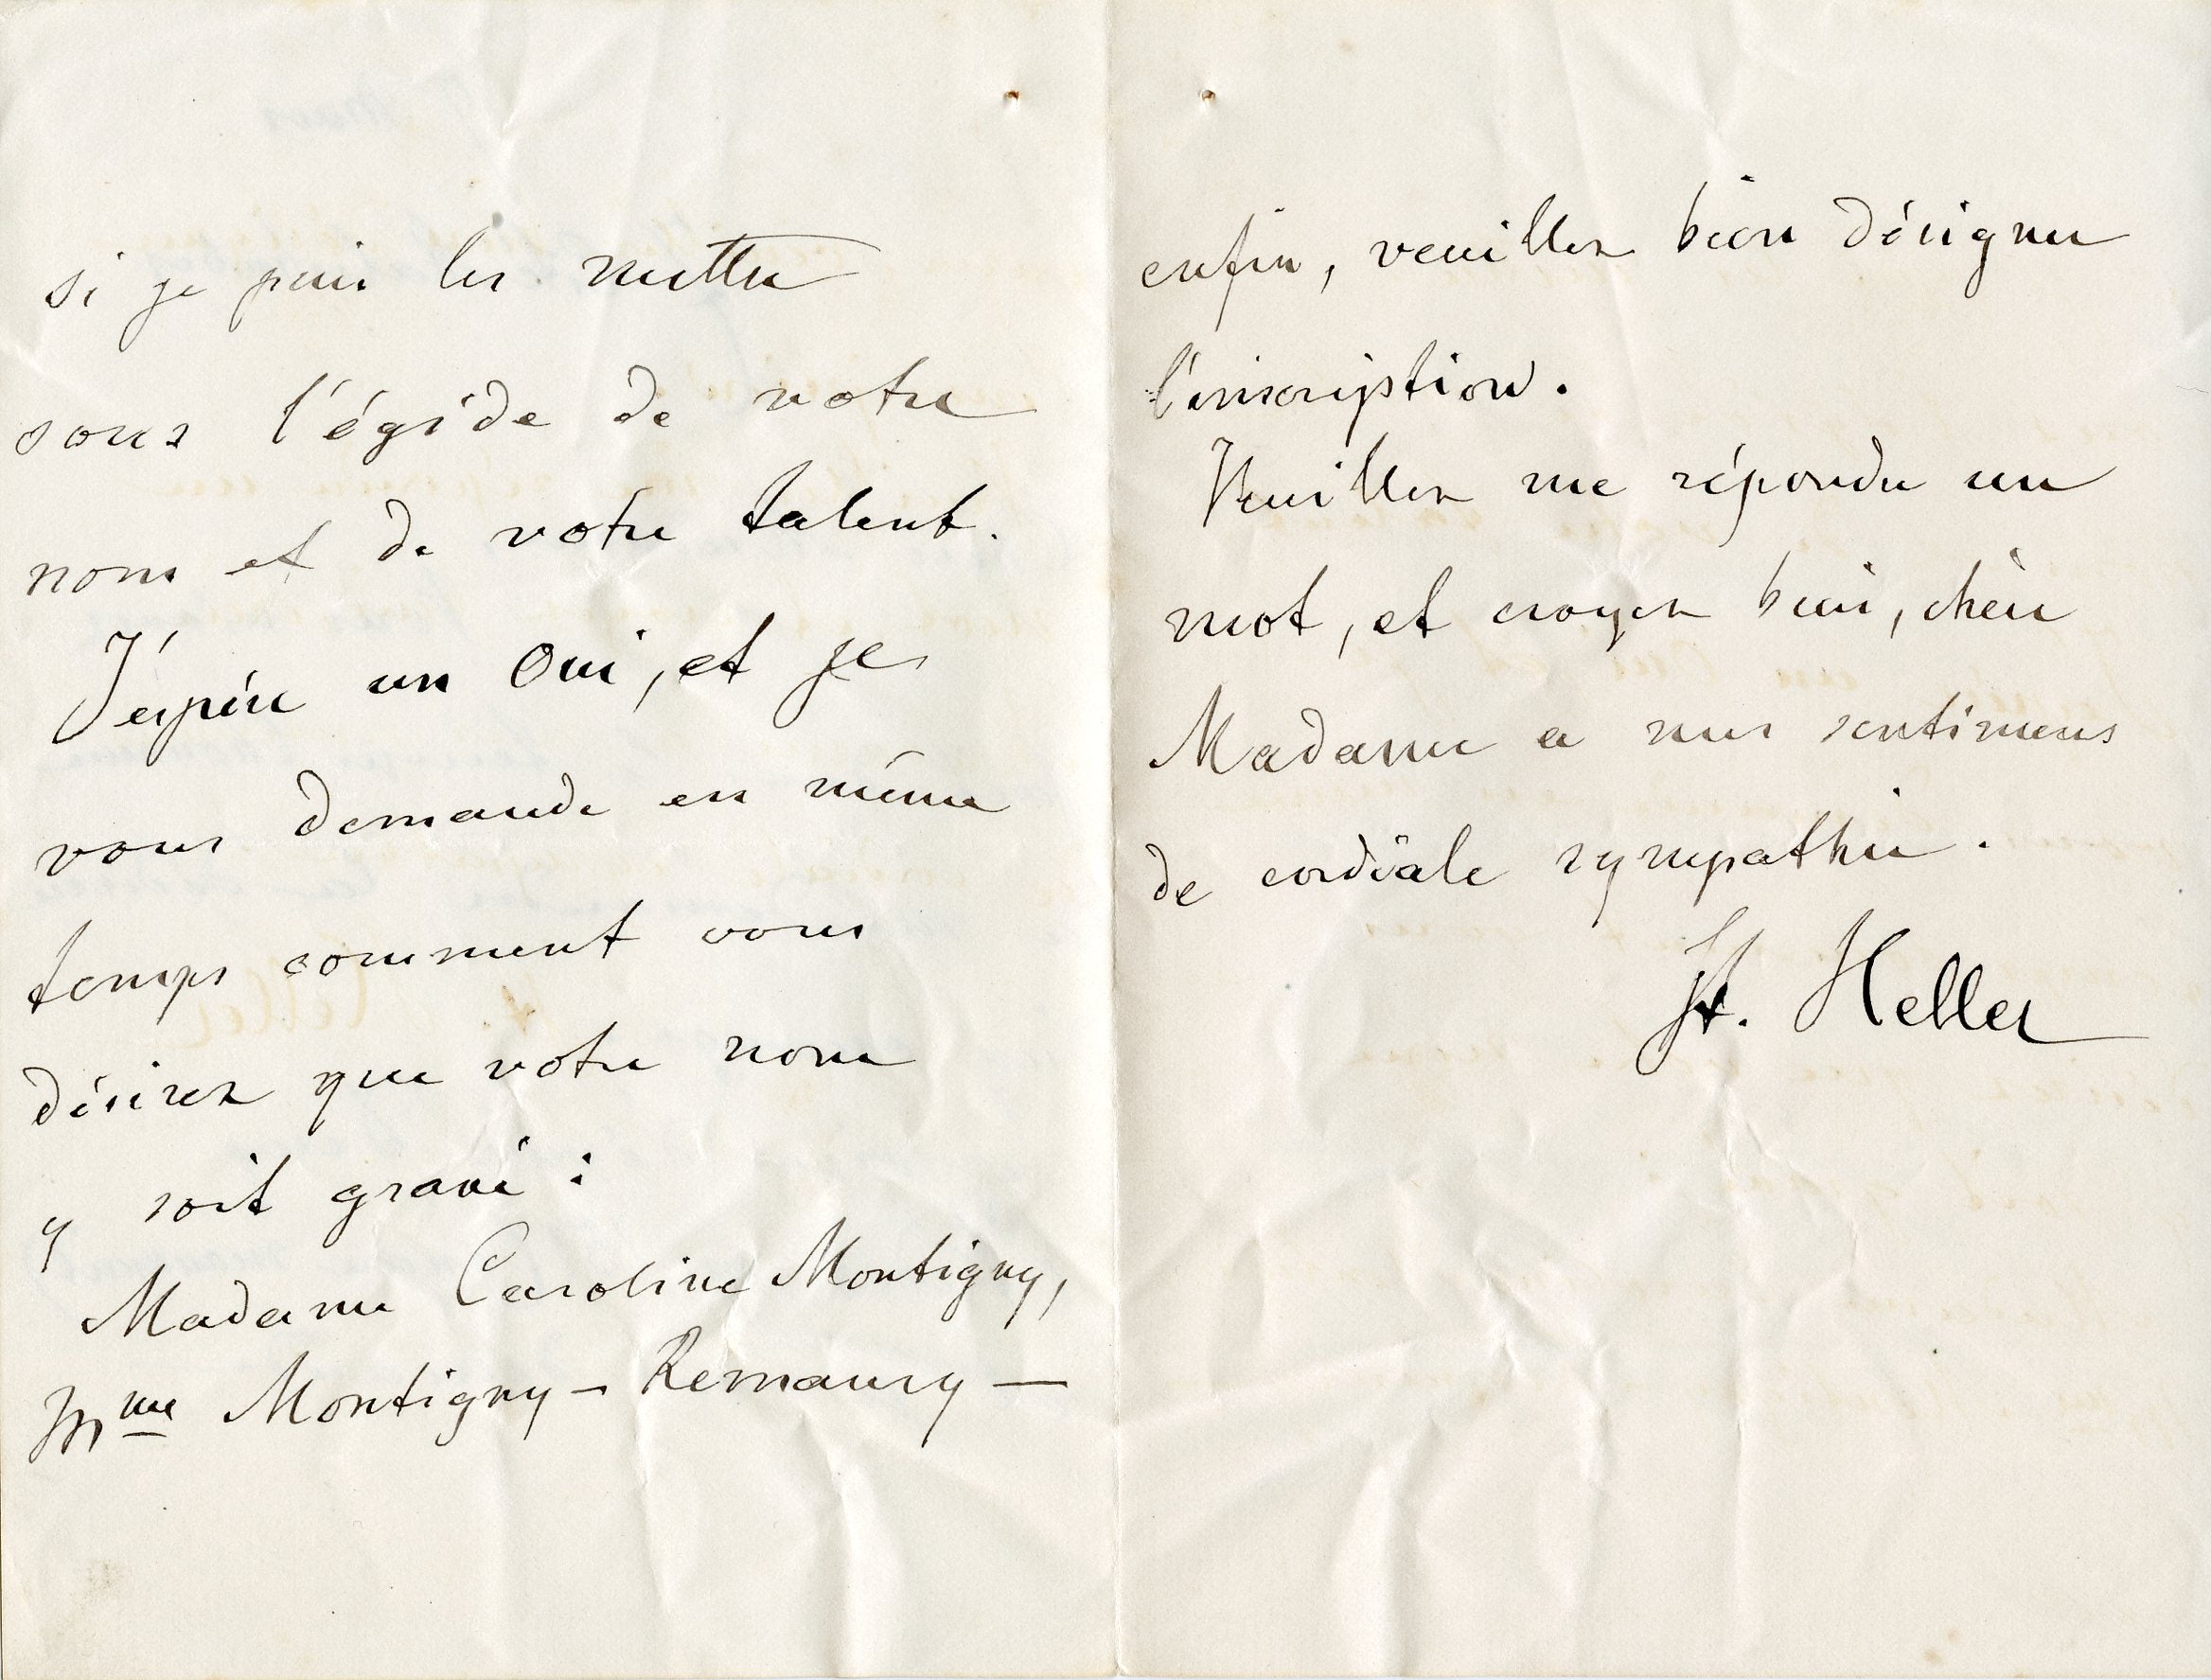 si je puis les mettre
sous l'égide de votre
nom et de votre talent.
J'espère un Oui, et je
vous demande en même
temps comment vous
désirez que votre nom
y soit gravé :
Madame Caroline Montigny,
Mme Montigny - Remaury —
enfin, veuillez bien désigner
l'inscription.
Veuillez me répondre un
mot, et croyez bien, chère
Madame a mes sentimens
de cordiale sympathie.
St. Heller